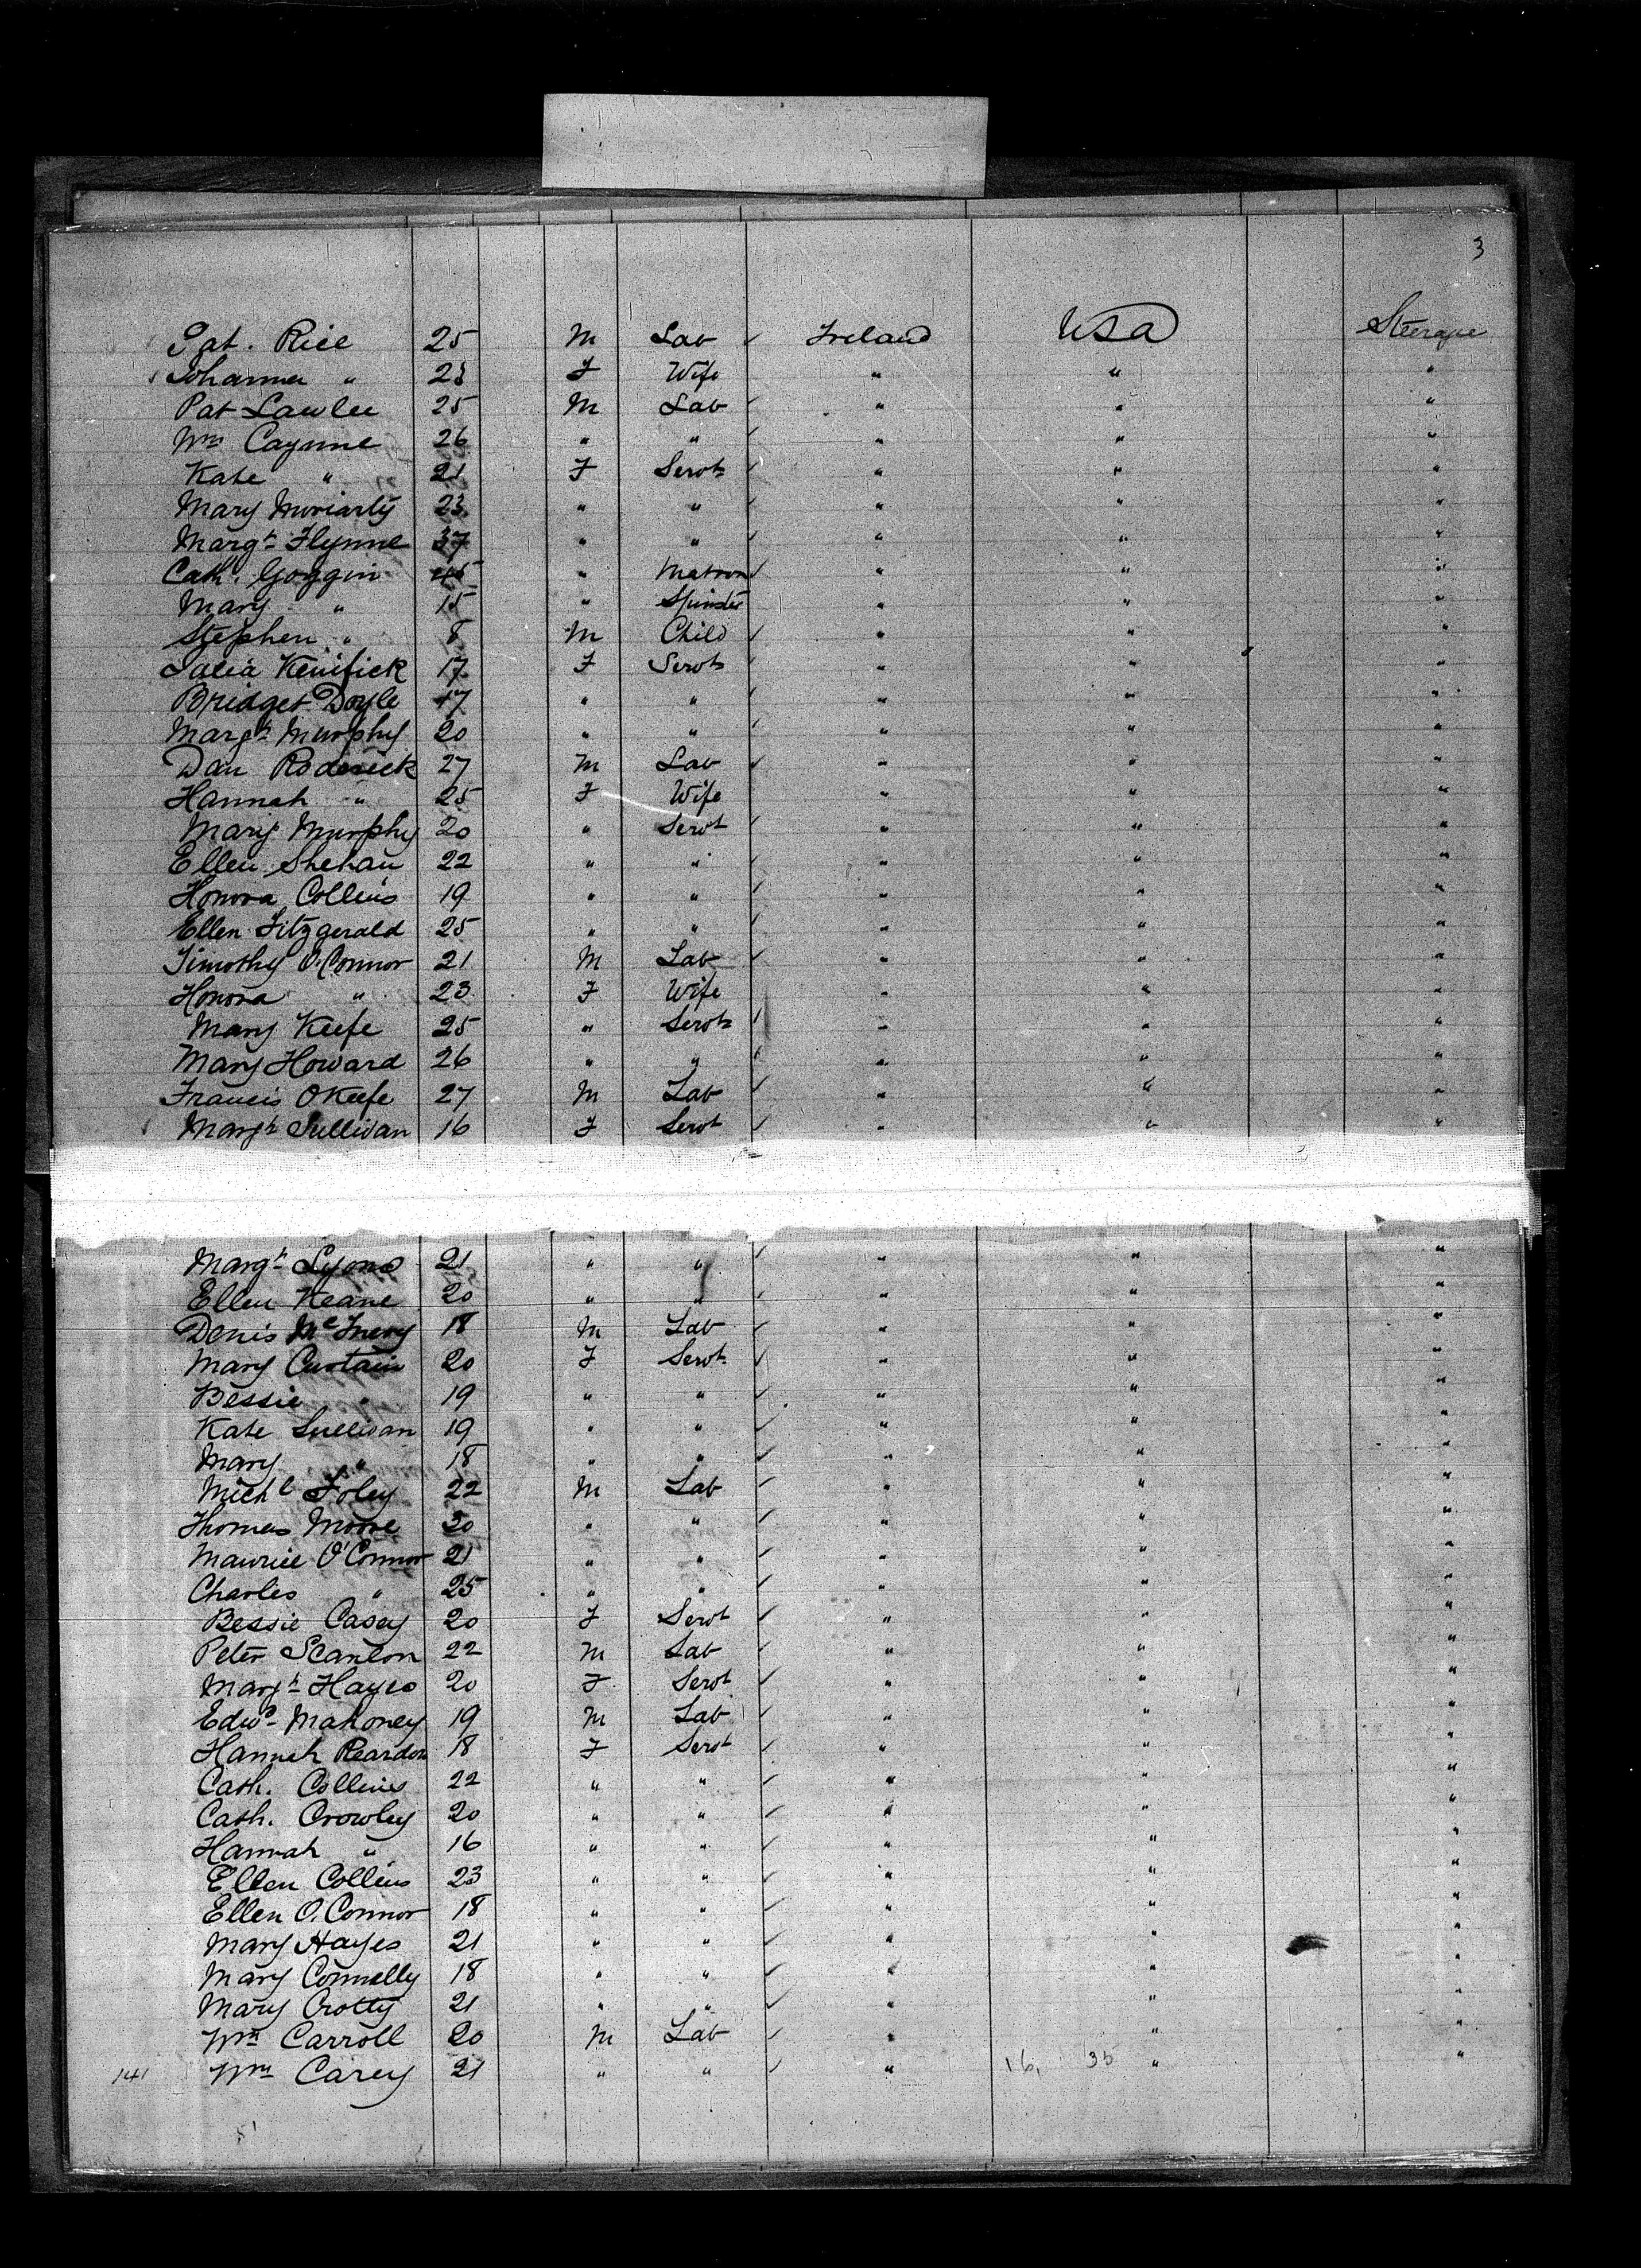 3
Pat. Rice 25 M Lab Ireland USA Steerage
Johanna " 23 F Wife " " "
Pat Lawlee 25 M Lab " " "
Wm Caynne 26 " " " " "
Kate " 21 F Servt " " "
Mary Moriarty 23 " " " " "
Margt Flynne 37 " " " " "
Cath. Goggin 45 " Matron " " "
Mary " 15 " Spinster " " "
Stephen " 8 M Child " " "
Kenifick 17 F Servt " " "
Bridget Doyle 17 " " " " "
Margt Murphy 20 " " " " "
Dan Roderick 27 M Lab " " "
Hannah " 25 F Wife " " "
Mary Murphy 20 " Servt " " "
Ellen Shehan 22 " " " " "
Honora Collins 19 " " " " "
Ellen Fitzgerald 25 " " " " "
Timothy O'Connor 21 M Lab " " "
Honora " 23 F Wife " " "
Mary Keefe 25 " Servt " " "
Mary Howard 26 " " " " "
Francis OKeefe 27 M Lab " " "
Margt Sullivan 16 F Servt " " "
Margt Lyons 21 " " " " "
Ellen Keane 20 " " " " "
Denis McInery 18 M Lab " " "
Mary Curtain 20 F Servt " " "
Bessie " 19 " " " " "
Kate Sullivan 19 " " " " "
Mary " 18 " " " " "
Michl Foley 22 M Lab " " "
Thomas Moore 20 " " " " "
Maurice O'Connor 21 " " " " "
Charles " 25 " " " " "
Bessie Casey 20 F Servt " " "
Peter Scanlon 22 M Lab " " "
Margt Hayes 20 F Servt " " "
Edwd Mahoney 19 M Lab " " "
Hannah Reardon 18 F Servt " " "
Cath. Collins 22 " " " " "
Cath. Crowley 20 " " " " "
Hannah " 16 " " " " "
Ellen Collins 23 " " " " "
Ellen O.Connor 18 " " " " "
Mary Hayes 21 " " " " "
Mary Connelly 18 " " " " "
Mary Crotty 21 " " " " "
Wm Carroll 20 M Lab " " "
141 Wm Carey 21 " " " 16, 35 " "